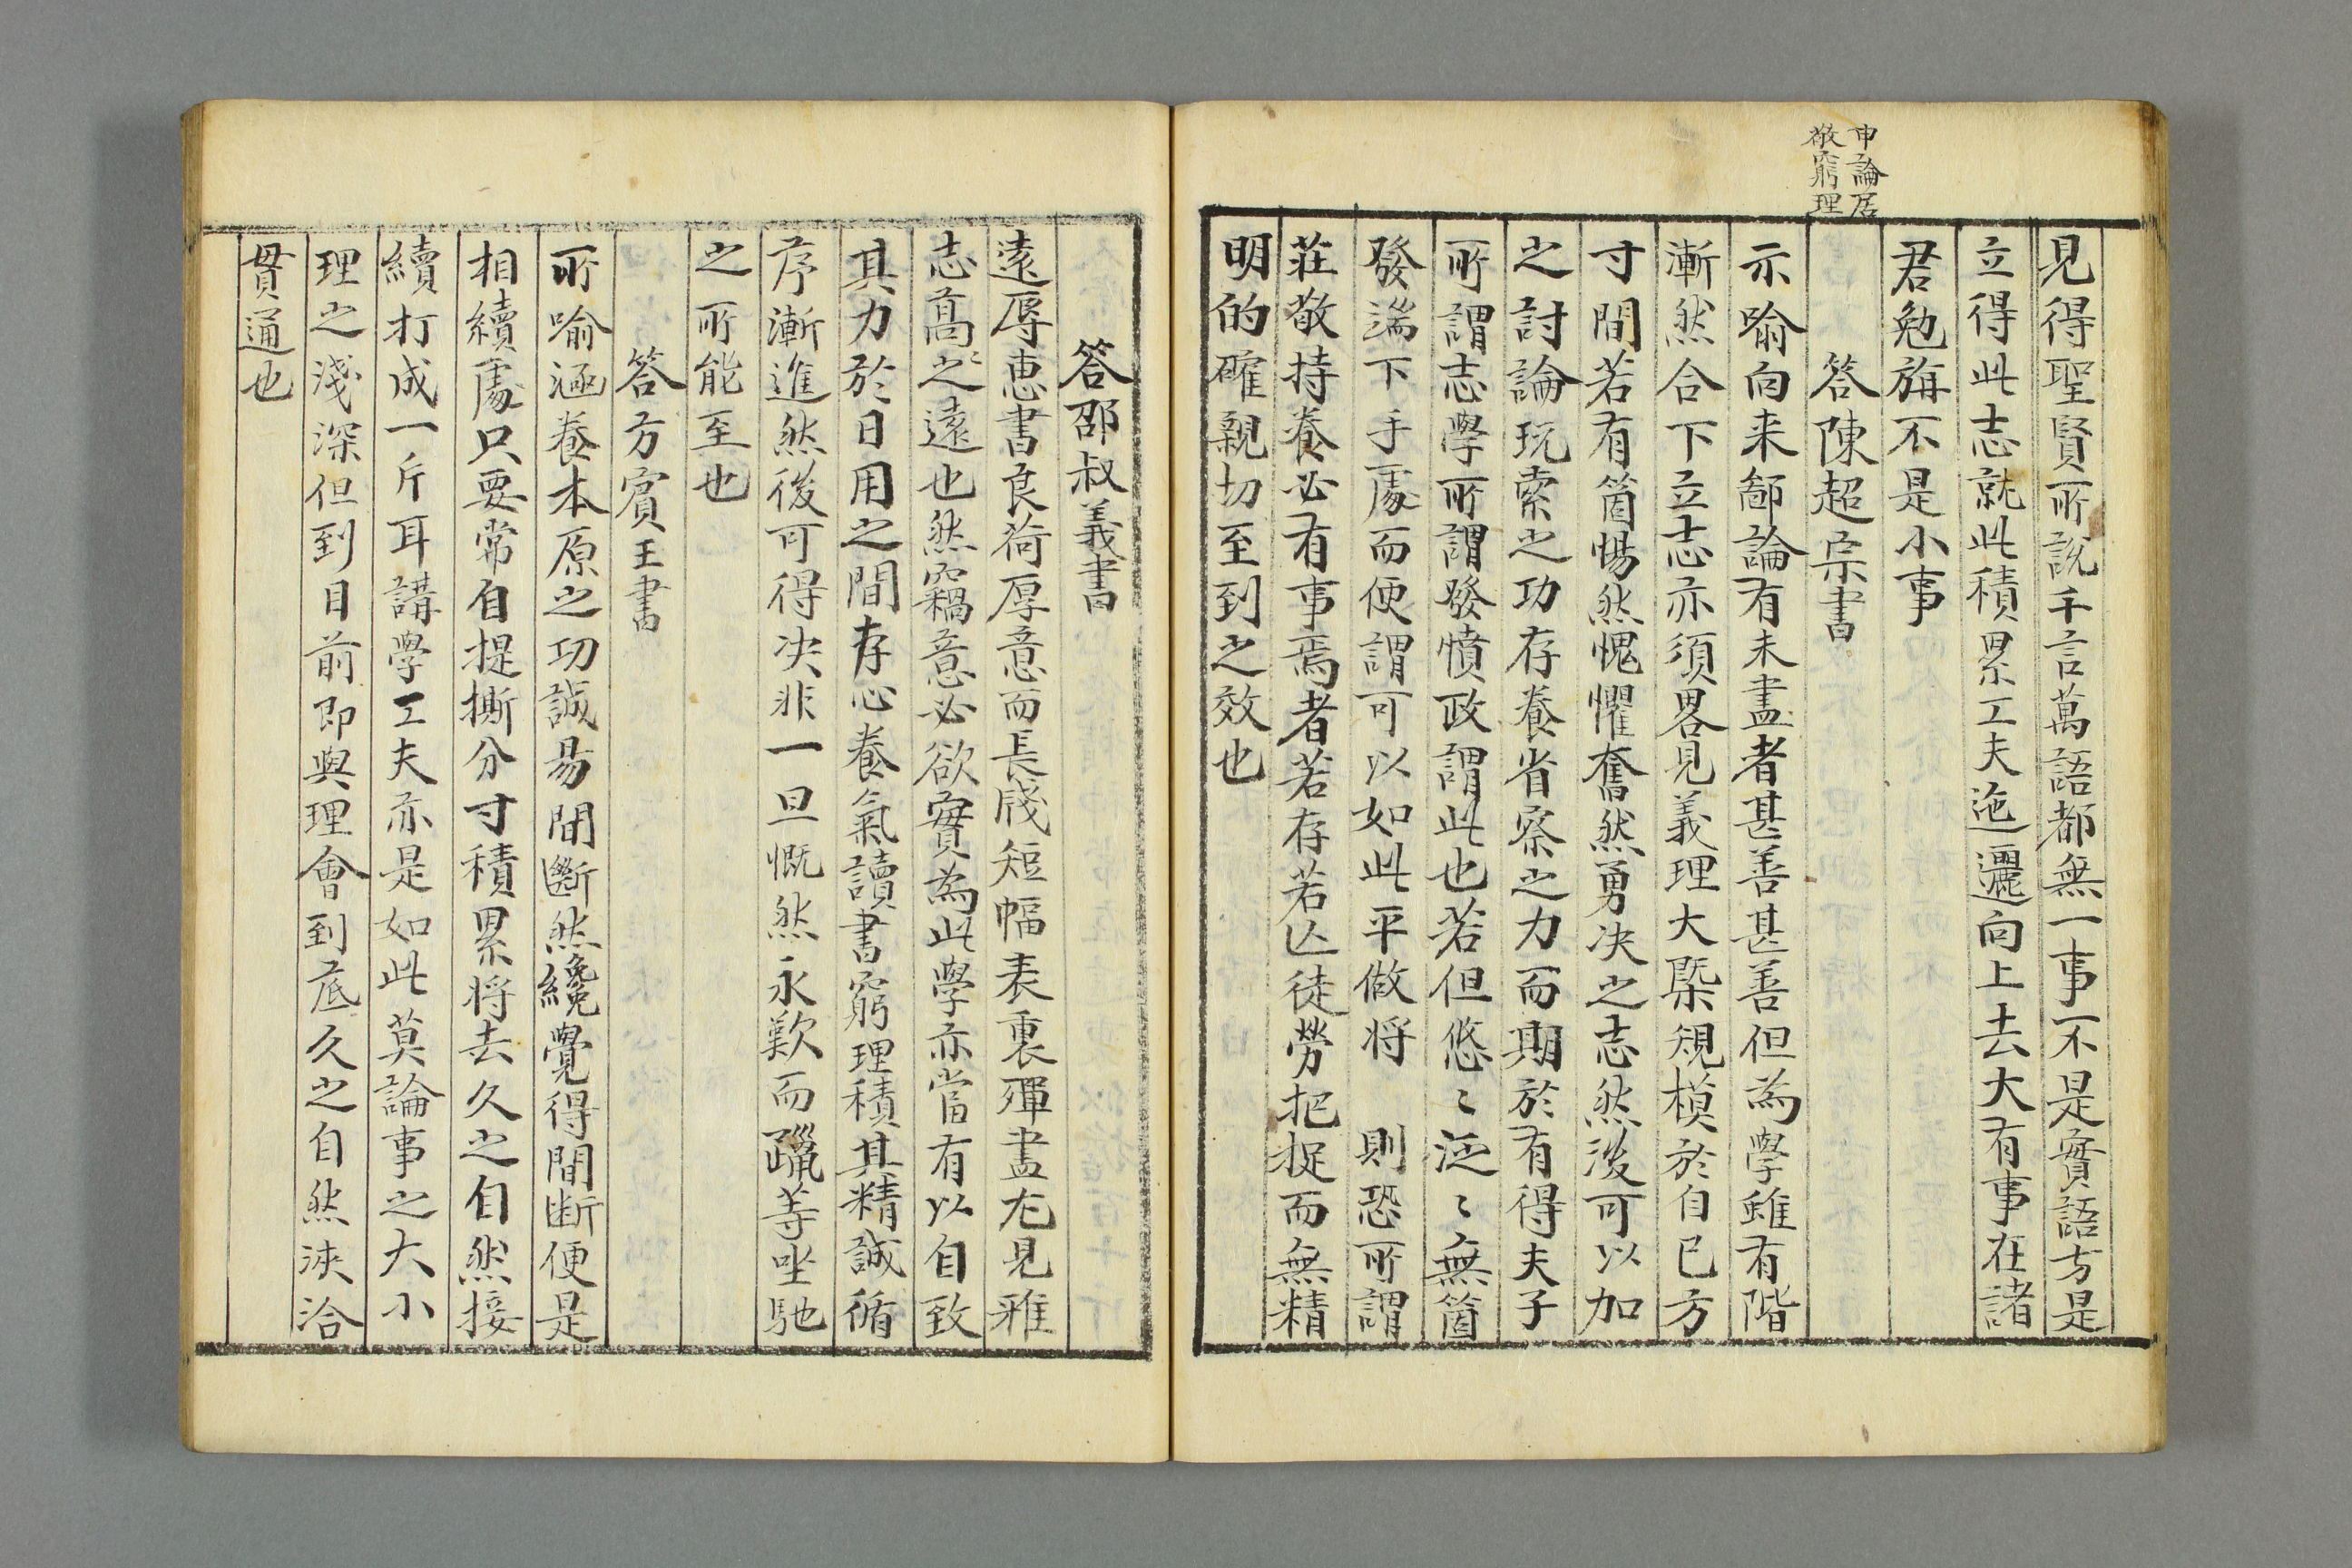 申論居
敬窮理
見得聖賢所說千言萬語都無一事不是實語方是
立得此志就此積累工夫迤邐向上去大有事在諸
君勉旃不是小事
答陳超宗書
示喻向来鄙論有未盡者甚善甚善但為學雖有階
漸然合下立志亦須畧見義理大槩規模於自已方
寸間若有箇惕然愧懼奮然勇决之志然後可以加
之討論玩索之功存養省察之力而期於有得夫子
所謂志學所謂發憤政謂此也若但悠〻泛〻無箇
發端下手處而便謂可以如此平做将 則恐所謂
荘敬持養必有事焉者若存若亾徒勞把捉而無精
明的確親切至到之效也
答邵叔義書
遠辱惠書良荷厚意而長牋短幅表裏殫盡尤見雅
志高之遠也然竊意必欲實為此學亦當有以自致
其力於日用之間存心養氣讀書窮理積其精誠循
序漸進然後可得决非一旦慨然永歎而躐等坐馳
之所能至也
答方賓王書
所喻涵養本原之功誠易間斷然纔覺得間断便是
相續處只要常自提撕分寸積累将去久之自然接
續打成一片耳講學工夫亦是如此莫論事之大小
理之淺深但到目前即與理會到底久之自然浹洽
貫通也